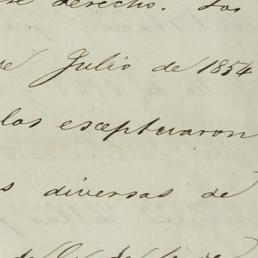 derecho. Los
Julio de 1854
los esceptuaron
s diversas de